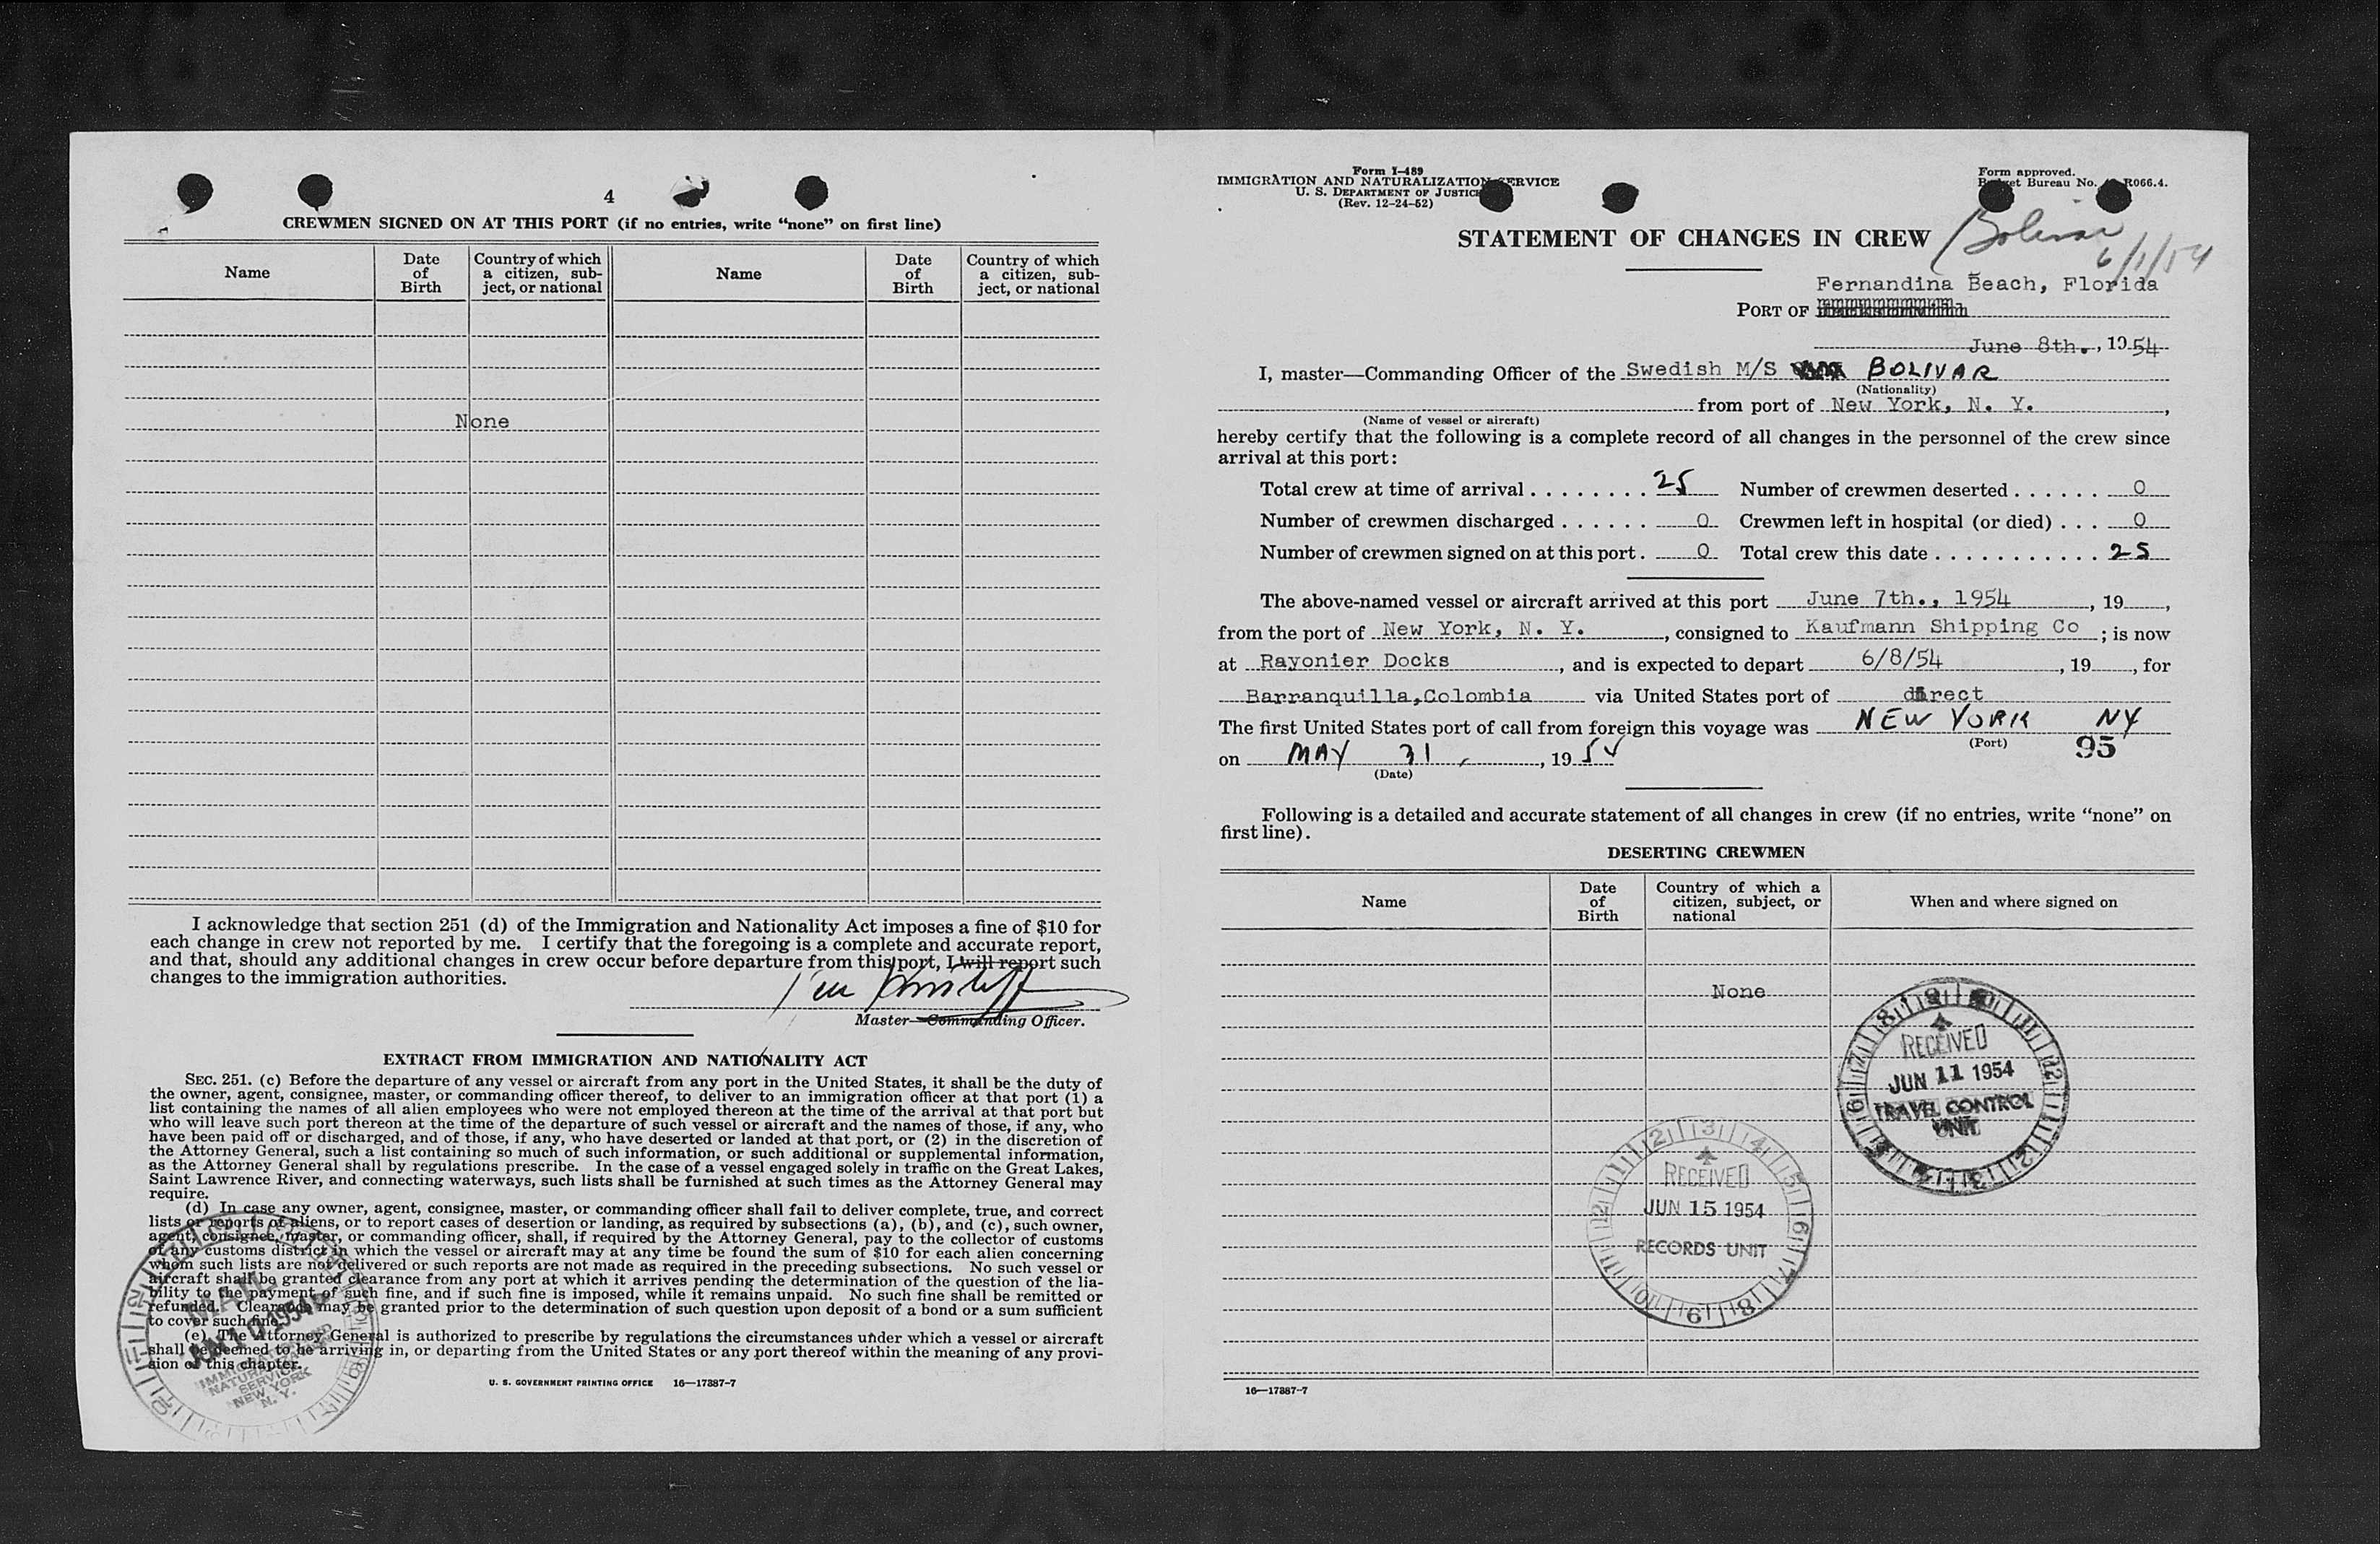 4
CREWMEN SIGNED ON AT THIS PORT (if no entries, write “none” on first line)
Name
Date of Birth
Country of which a citizen, sub-
ject, or national
Name
Date of Birth
Country of which a citizen, sub-
ject, or national
None
I acknowledge that section 251 (d) of the Immigration and Nationality Act imposes a fine of $10 for
each change in crew not reported by me. I certify that the foregoing is a complete and accurate report,
and that, should any additional changes in crew occur before departure from this port, I will report such
changes to the immigration authorities.
Master—Commanding Officer.
EXTRACT FROM IMMIGRATION AND NATIONALITY ACT
SEC. 251. (c) Before the departure of any vessel or aircraft from any port in the United States, it shall be the duty of
the owner, agent, consignee, master, or commanding officer thereof, to deliver to an immigration officer at that port (1) a
list containing the names of all alien employees who were not employed thereon at the time of the arrival at that port but
who will leave such port thereon at the time of the departure of such vessel or aircraft and the names of those, if any, who
have been paid off or discharged, and of those, if any, who have deserted or landed at that port, or (2) in the discretion of
the Attorney General, such a list containing so much of such information, or such additional or supplemental information,
as the Attorney General shall by regulations prescribe. In the case of a vessel engaged solely in traffic on the Great Lakes,
Saint Lawrence River, and connecting waterways, such lists shall be furnished at such times as the Attorney General may
require.
(d) In case any owner, agent, consignee, master, or commanding officer shall fail to deliver complete, true, and correct
lists or reports of aliens, or to report cases of desertion or landing, as required by subsections (a), (b), and (c), such owner,
agent, consignee, master, or commanding officer, shall, if required by the Attorney General, pay to the collector of customs
of any customs district in which the vessel or aircraft may at any time be found the sum of $10 for each alien concerning
whom such lists are not delivered or such reports are not made as required in the preceding subsections. No such vessel or
aircraft shall be granted clearance from any port at which it arrives pending the determination of the question of the lia-
bility to the payment of such fine, and if such fine is imposed, while it remains unpaid. No such fine shall be remitted or
refunded. Clearance may be granted prior to the determination of such question upon deposit of a bond or a sum sufficient
to cover such fine.
(e) The Attorney General is authorized to prescribe by regulations the circumstances under which a vessel or aircraft
shall be deemed to be arriving in, or departing from the United States or any port thereof within the meaning of any provi-
sion of this chapter.
MAIL
1954
IMMIGRATION AND
NATURALIZATION
SERVICE
NEW YORK
N. Y.
U. S. GOVERNMENT PRINTING OFFICE 16—17887-7
Form I-489
IMMIGRATION AND NATURALIZATION SERVICE
U. S. DEPARTMENT OF JUSTICE
(Rev. 12-24-52)
Form approved.
Budget Bureau No. R066.4.
STATEMENT OF CHANGES IN CREW
Bolivar
6/1/54
Fernandina Beach, Florida
PORT OF
June 8th., 1954
I, master—Commanding Officer of the Swedish M/S BOLIVAR
(Nationality)
from port of New York, N. Y.,
(Name of vessel or aircraft)
hereby certify that the following is a complete record of all changes in the personnel of the crew since
arrival at this port:
Total crew at time of arrival ........ 25 Number of crewmen deserted ...... 0
Number of crewmen discharged ...... 0 Crewmen left in hospital (or died) ... 0
Number of crewmen signed on at this port. 0 Total crew this date ........... 25
The above-named vessel or aircraft arrived at this port June 7th., 1954, 19,
from the port of New York, N. Y., consigned to Kaufmann Shipping Co; is now
at Rayonier Docks, and is expected to depart 6/8/54, 19, for
Barranquilla,Colombia via United States port of direct
The first United States port of call from foreign this voyage was NEW YORK NY
(Port)
95
on MAY 31, 1954
(Date)
Following is a detailed and accurate statement of all changes in crew (if no entries, write “none” on
first line).
DESERTING CREWMEN
Name
Date of Birth
Country of which a citizen, subject, or national
When and where signed on
None
RECEIVED
JUN 11 1954
TRAVEL CONTROL
UNIT
RECEIVED
JUN 15 1954
RECORDS UNIT
16—17887-7